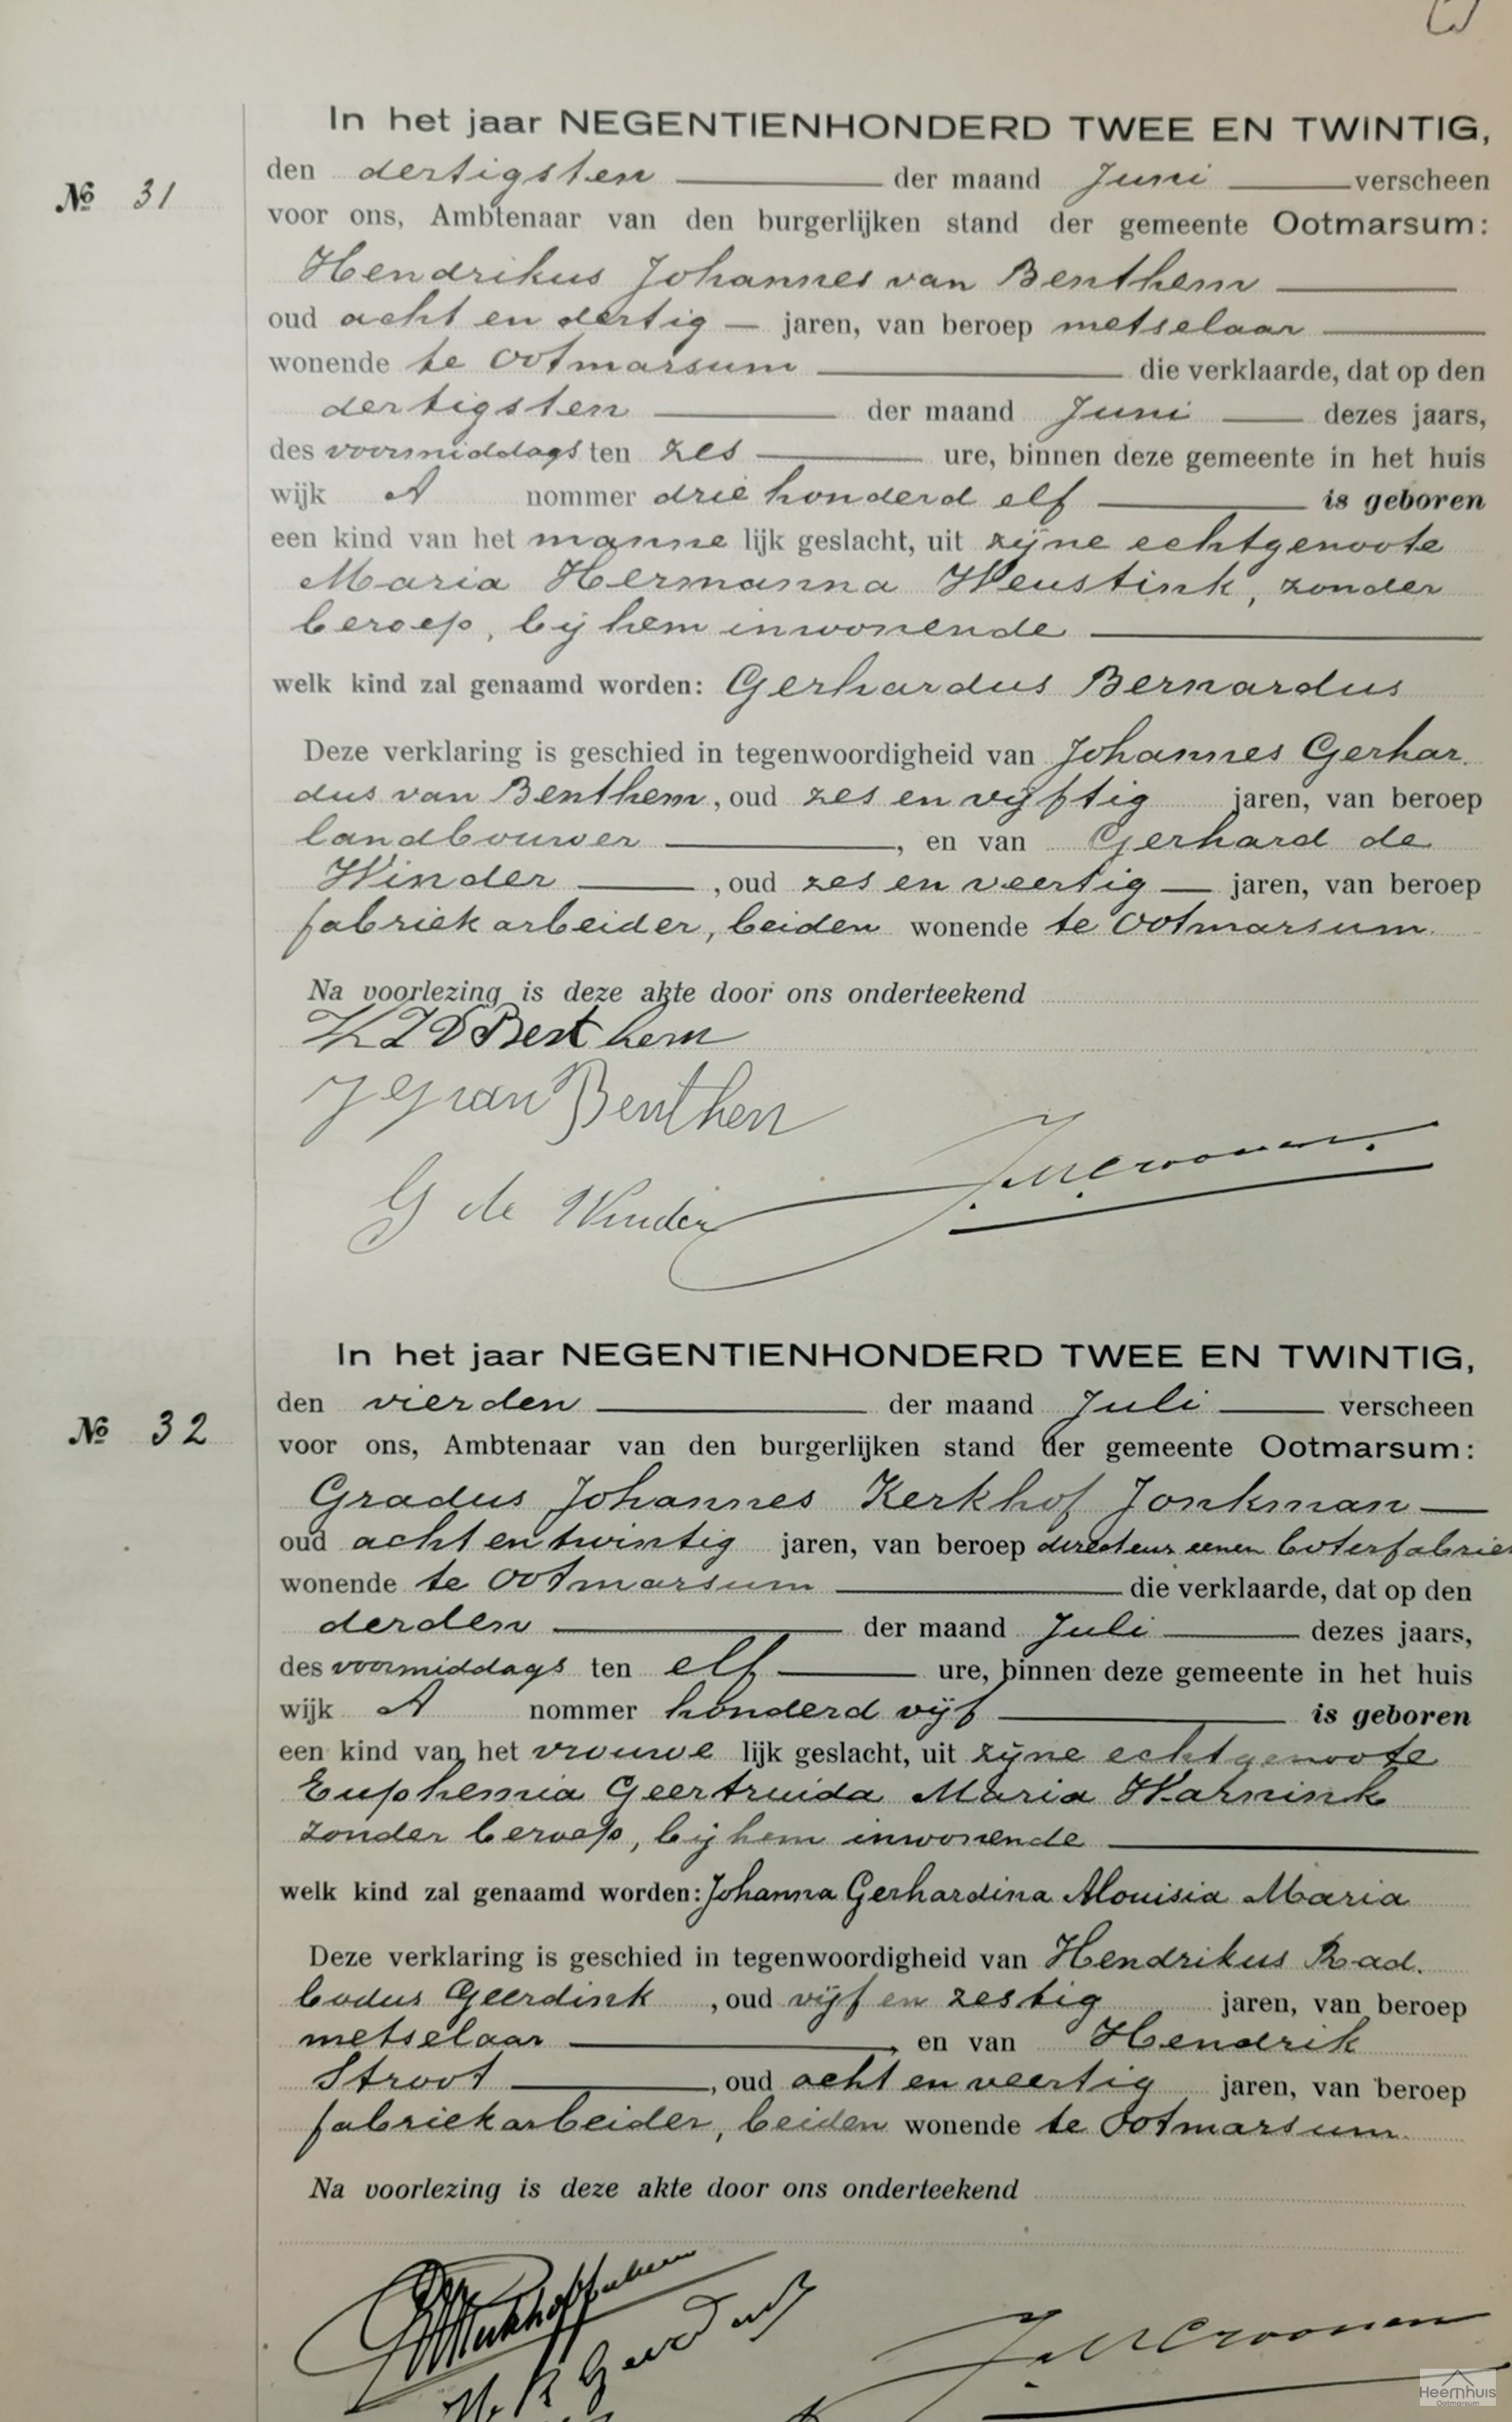 In het jaar NEGENTIENHONDERD TWEE EN TWINTIG,
den dertigsten der maand Juni verscheen
№ 31
voor ons, Ambtenaar van den burgerlijken stand der gemeente Ootmarsum:
Hendrikus Johannes van Benthem
oud acht en dertig jaren, van beroep metselaar
wonende te Ootmarsum die verklaarde, dat op den
dertigsten der maand Juni dezes jaars,
des voormiddags ten zes ure, binnen deze gemeente in het huis
wijk A nommer drie honderd elf is geboren
een kind van het manne lijk geslacht, uit zijne echtgenoote
Maria Hermanna Weustink, zonder
beroep, bij hem inwonende
welk kind zal genaamd worden: Gerhardus Bernardus
Deze verklaring is geschied in tegenwoordigheid van Johannes Gerhar.
dus van Benthem, oud zes en vijftig jaren, van beroep
landbouwer, en van Gerhard de
Winder, oud zes en veertig jaren, van beroep
fabriekarbeider, beiden wonende te Ootmarsum.
Na voorlezing is deze akte door ons onderteekend
H J V Benthem
J G van Benthem
G de Winder
In het jaar NEGENTIENHONDERD TWEE EN TWINTIG,
den vierden der maand Juli verscheen
№ 32
voor ons, Ambtenaar van den burgerlijken stand der gemeente Ootmarsum:
Gradus Johannes Kerkhof Jonkman
oud acht en twintig jaren, van beroep directeur eener boterfabriek
wonende te Ootmarsum die verklaarde, dat op den
derden der maand Juli dezes jaars,
des voormiddags ten elf ure, binnen deze gemeente in het huis
wijk A nommer honderd vijf is geboren
een kind van het vrouwe lijk geslacht, uit zijne echtgenoote
Euphemia Geertruida Maria Warnink
zonder beroep, bij hem inwonende
welk kind zal genaamd worden: Johanna Gerhardina Alouisia Maria
Deze verklaring is geschied in tegenwoordigheid van Hendrikus Rad.
bodus Geerdink, oud vijf en zestig jaren, van beroep
metselaar, en van Hendrik
Stroot, oud acht en veertig jaren, van beroep
fabriekarbeider, beiden wonende te Ootmarsum.
Na voorlezing is deze akte door ons onderteekend
H. R Geerdink
Heemhuis
Ootmarsum